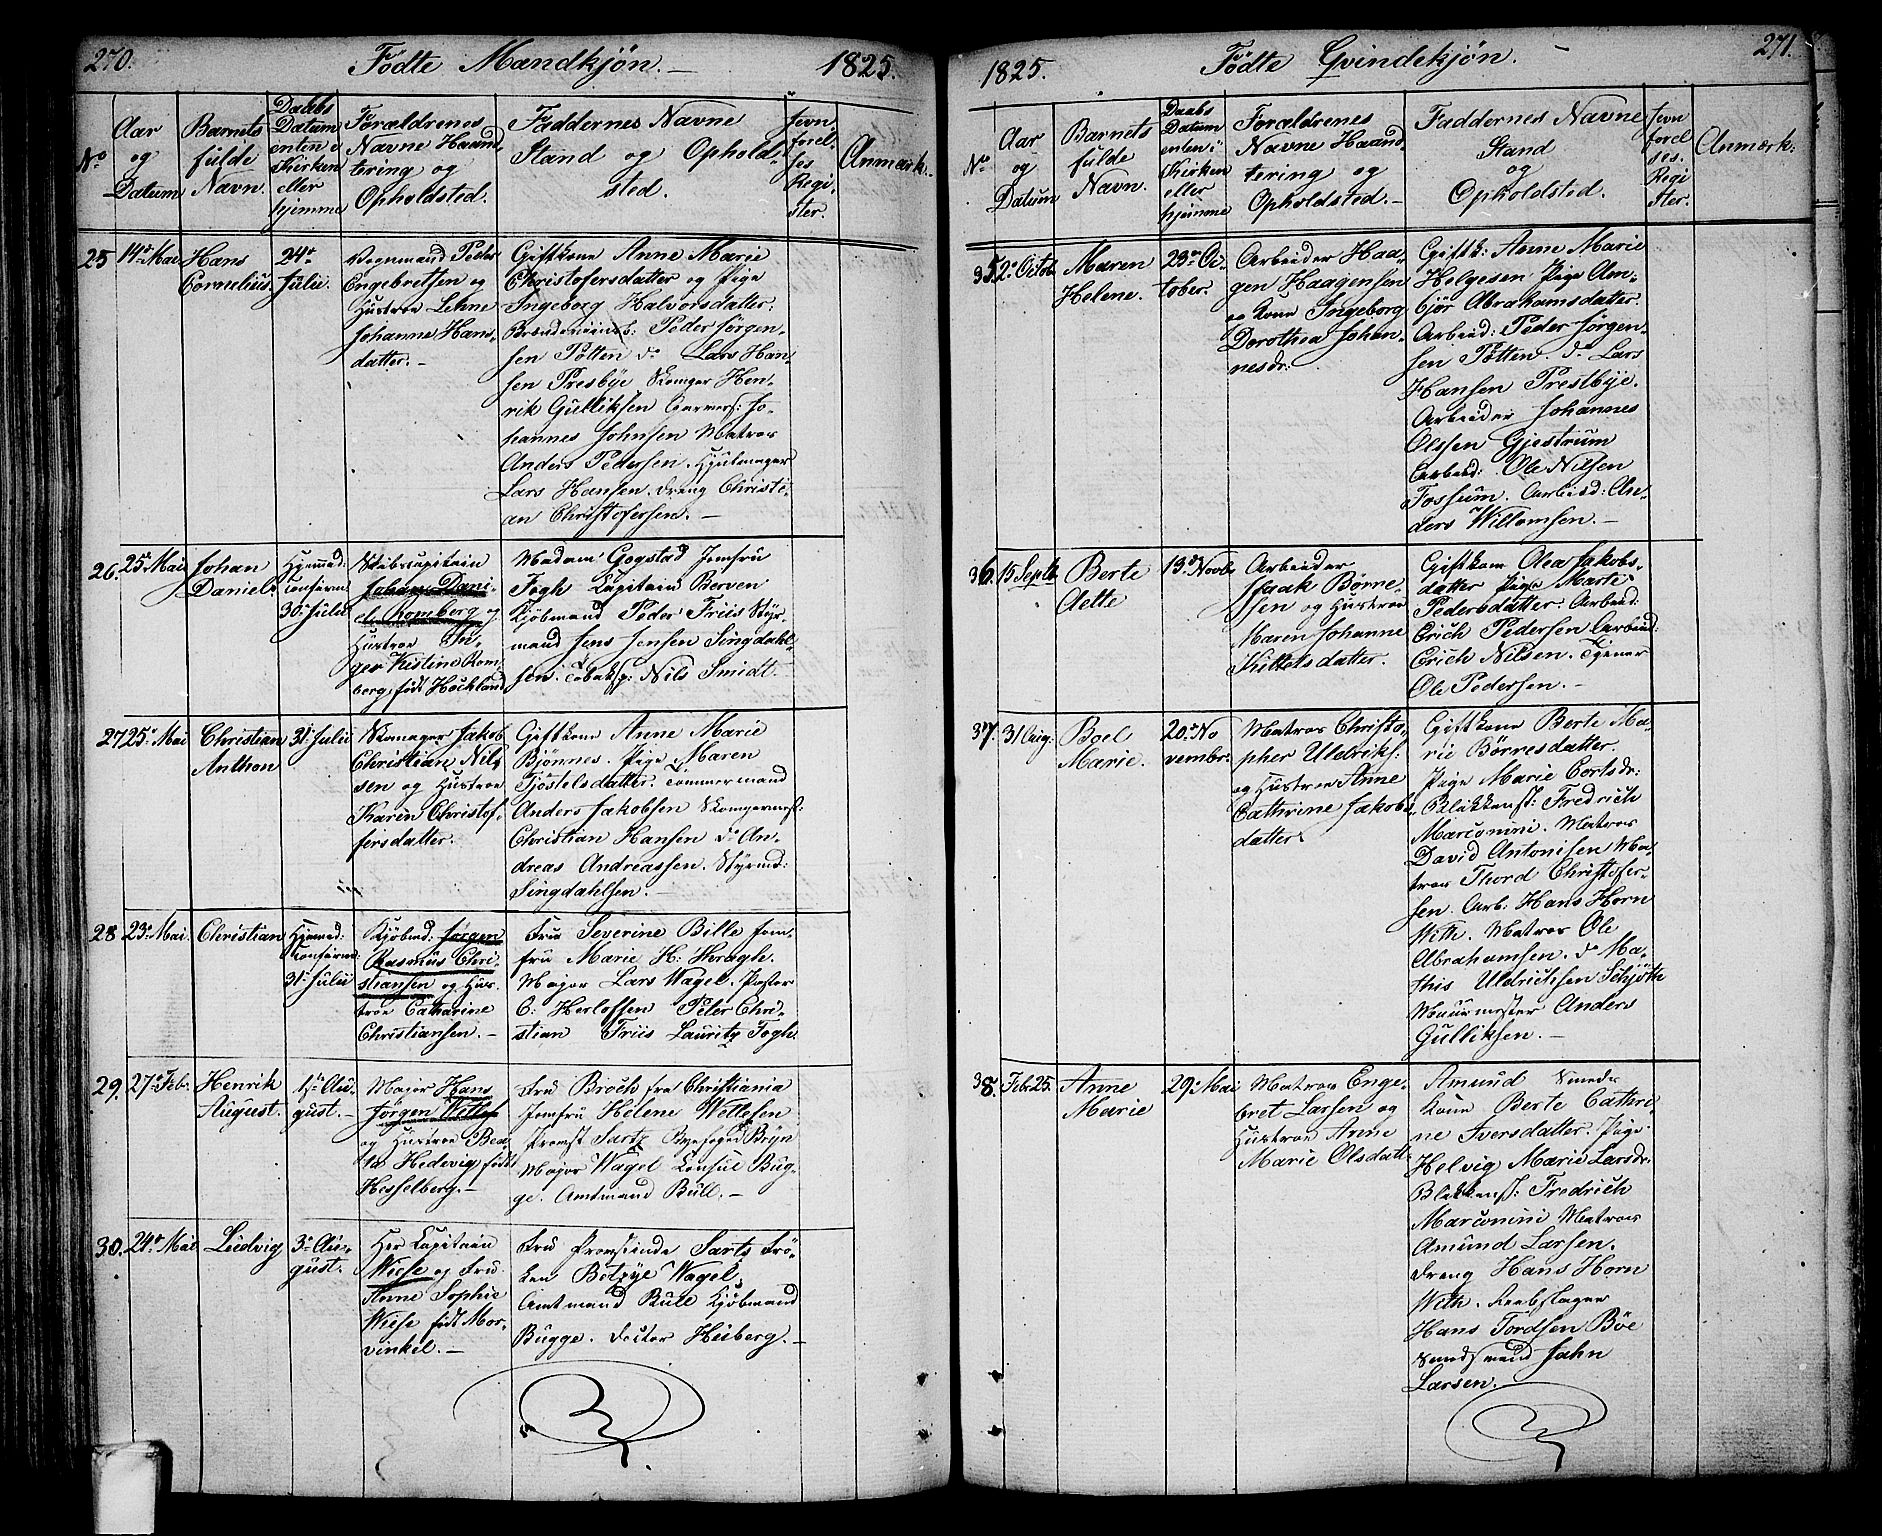 270.
Fødte Mandkjøn. —
1825.
No
Aar
og
Datum
Barnets
fulde
Navn.
Daabs
Datum
enten i
Kirken
eller
hjemme
Forældrenes
Navne Haand
tering og
Opholdsted.
Faddernes Navne
Stand og Ophold
sted.
Jevn
forel
ses
Regi
ster.
Anmærk.
25
14de Mai
Hans
Cornelius
24de
Julii
Vognmand Peder
Engebretsen og
Hustroe Lehne
Johanne Hans,
datter. —
Giftkone Anne Marie
Christofersdatter og Pige
Ingeborg Halvorsdatter.
Peder Jørgen
sen Potten do Lars Han
sen Presbye Skomager Hen
rik Gulliksen Jo
hannes Johnsen Matros
Anders Pedersen. Hjulmager
Lars Hansen. Dreng Christi
an Christofersen. —
26.
25de Mai
Johan
Daniel
Hjemmed:
Confirm
30te Julii
Stabscapitain
Johan Dani
el Romberg og
Hustroe In
ger Kistine Rom
berg, født Hochland
Madam Gogstad Jomfru
Fogh Capitain Berven
Kjøbmand Peder Friis Styr
mand Jens Jensen Singdahl
sen. Tobaksp: Nils Smidt.
27
25de Mai
Christian
Anthon
31te Julii
Skomager Jakob
Christian Nil
sen og Hustroe
Karen Christof
fersdatter.
Giftkone Anne Marie
Bjønnes. Pige Maren
Tjøstelsdatter. Tømmermand
Anders Jakobsen Skomagermst:
Christian Hansen do An
dreas Andreassen. Styrmd:
Singdahlsen. —
28
23de Mai.
Christian
Hjemmed:
Confirm:
31te Julii
Kjøbmd: Jørgen
Rasmus Chri
stiansen og Hus
troe Catharine
Christiansen. —
Fru Severine Bille Jom
fru Marie H: Kragh.
Major Lars Wagel. Pastor
O: Herlofsen Peter Chri
stian Friis Lauritz Fogh.
29.
27de Febr.
Henrik
August.
1ste Au
gust. —
Major Hans
Jørgen Wetles
og Hustroe Bea
ta Hedevig født
Hesselberg. —
Fru Broch fra Christiania
Jomfru Helene Wetlesen
Provst Sartz Byefoged Bryn
Major Wagel Consul Bug
ge. Amtmand Bull. —
30.
24de Mai
Ludvig
3die Au
gust.
Her Capitain
Wiese og Fru
Anne Sophie
Wiese født Mor
vinkel. —
Fru Provstinde Sarts Frø
ken Betzye Wagel
Amtmand Bull Kjøbmand
Bugge. Docter Heiberg. —
1825.
Fødte Qvindekjøn. —
271.
No
Aar
og
Datum
Barnets
fulde
Navn.
Daabs
Datum
enten i
Kirken
eller
hjemme
Forældrenes
Navne Haand
tering og
Opholdsted. —
Faddernes Navne
Stand
og
Opholdsted.
Jevn
forel
ses.
Regi
ster.
Anmærk:
35
2de Octob
Maren
Helene.
23de Oc
tober.
Arbeider Haa
gen Haagensen
og Kone Ingeborg
Dorothea Johan
nesdr:
Giftk: Anne Marie
Helgesen Pige Am
bjør Abrahamsdatter
Arbeid: Peder Jørgen
sen Potten do Lars
Hansen Prestbye.
Arbeider Johannes
Olssen Gjestrum
Arbeid: Ole Nilsen
Fossum. Arbeid: An
ders Willomsen. —
36.
15 Septb
Berte
Aette
13de Novbr
Arbeider
Isaak Børre
sen og Hustroe
Maren Johanne
Kittelsdatter.
Giftkone Olea Jakobs
datter Pige Marte
Pedersdatter. Arbeid:
Erich Pedersen Arbeid:
Erich Nilsen. Tjener
Ole Pedersen. —
37.
31 Aug.
Boel
Marie.
20de No
vembr.
Matros Christo
pher Uldriks:
og Hustroe Anne
Cathrine Jakobs
datter
Giftkone Berte Ma
rie Børresdatter.
Pige Marie Cortsdr:
Blikkenst: Fredrich
Marconini. Matros
David Antonisen Ma
tros Thord Christofer
sen. Arb: Hans Horn
With. Matros Ole
Abrahamsen. do Ma
this Uldrichsen Schjøth
Muurmester Anders
Gulliksen. —
38.
Febr 25.
Anne
Marie
29de Mai
Matros Enge
bret Larsen og
Hustroe Anne
Marie Olsdatt
Amund Smeds
Kone Berte Cathri
ne Iversdatter. Pige
Helvig Marie Larsdr.
Blikkenst: Fredrich
Marconini Matros
Amund Larsen.
Dreng Hans Horn
With. Reebslager
Hans Tordsen Bøe
Smedsmand Jahn
Larsen.